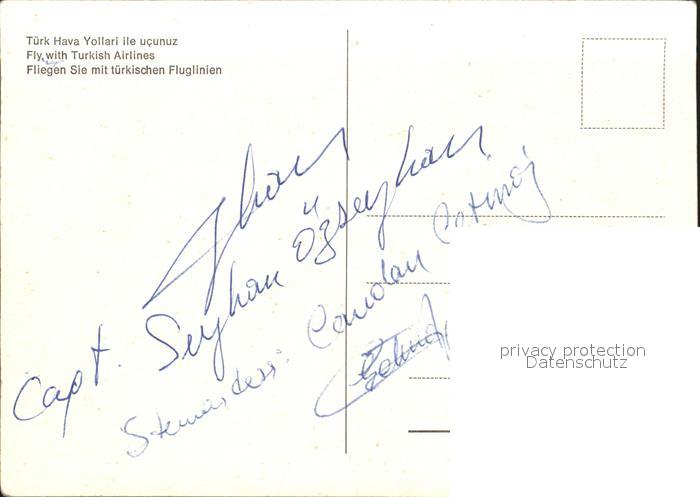 Türk Hava Yollari ile uçunuz
Fly with Turkish Airlines
Fliegen Sie mit türkischen Fluglinien
Capt. Seyhan Öğseyhan
Stewardess: Candan
privacy protection
Datenschutz